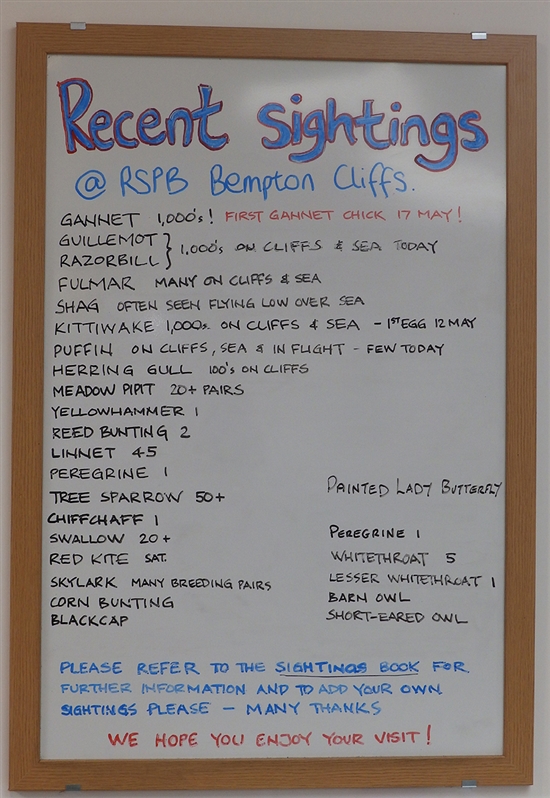 Recent Sightings
@ RSPB Bempton Cliffs.
GANNET 1,000's! FIRST GANNET CHICK 17 MAY!
GUILLEMOT
RAZORBILL } 1,000's ON CLIFFS & SEA TODAY
FULMAR MANY ON CLIFFS & SEA
SHAG OFTEN SEEN FLYING LOW OVER SEA
KITTIWAKE 1,000s ON CLIFFS & SEA - 1ST EGG 12 MAY
PUFFIN ON CLIFFS, SEA & IN FLIGHT - FEW TODAY
HERRING GULL 100's ON CLIFFS
MEADOW PIPIT 20+ PAIRS
YELLOWHAMMER 1
REED BUNTING 2
LINNET 45
PEREGRINE 1
TREE SPARROW 50+
CHIFFCHAFF 1
SWALLOW 20+
RED KITE SAT.
SKYLARK MANY BREEDING PAIRS
CORN BUNTING
BLACKCAP
PAINTED LADY BUTTERFLY
PEREGRINE 1
WHITETHROAT 5
LESSER WHITETHROAT 1
BARN OWL
SHORT-EARED OWL
PLEASE REFER TO THE SIGHTINGS BOOK FOR
FURTHER INFORMATION AND TO ADD YOUR OWN
SIGHTINGS PLEASE - MANY THANKS
WE HOPE YOU ENJOY YOUR VISIT!